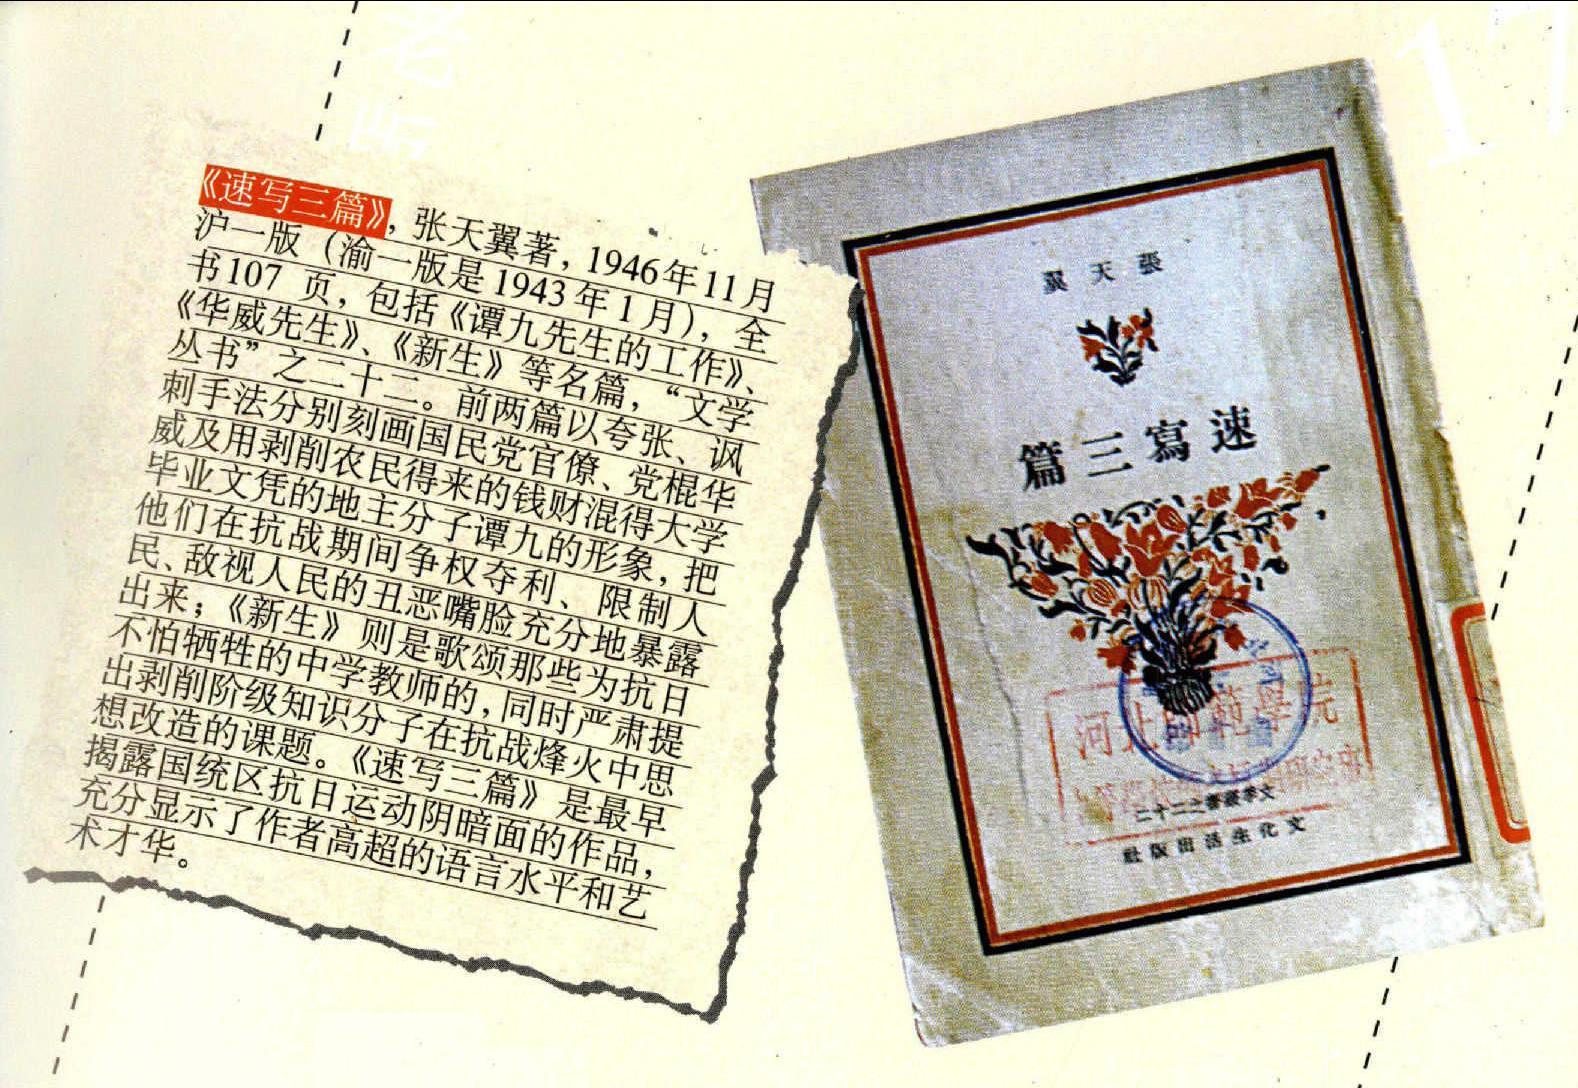 《速写三篇》，张天翼著，1946年11月
沪一版（渝一版是1943年1月），全
书107页，包括《谭九先生的工作》、
《华威先生》、《新生》等名篇，“文学
丛书”之二十二。前两篇以夸张、讽
刺手法分别刻画国民党官僚、党棍华
威及用剥削农民得来的钱财混得大学
毕业文凭的地主分子谭九的形象，把
他们在抗战期间争权夺利、限制人
民、敌视人民的丑恶嘴脸充分地暴露
出来；《新生》则是歌颂那些为抗日
不怕牺牲的中学教师的，同时严肃提
出剥削阶级知识分子在抗战烽火中思
想改造的课题。《速写三篇》是最早
揭露国统区抗日运动阴暗面的作品，
充分显示了作者高超的语言水平和艺
术才华。
張天翼
速寫三篇
河北師範學院
文學叢書之二十二
文化生活出版社
17